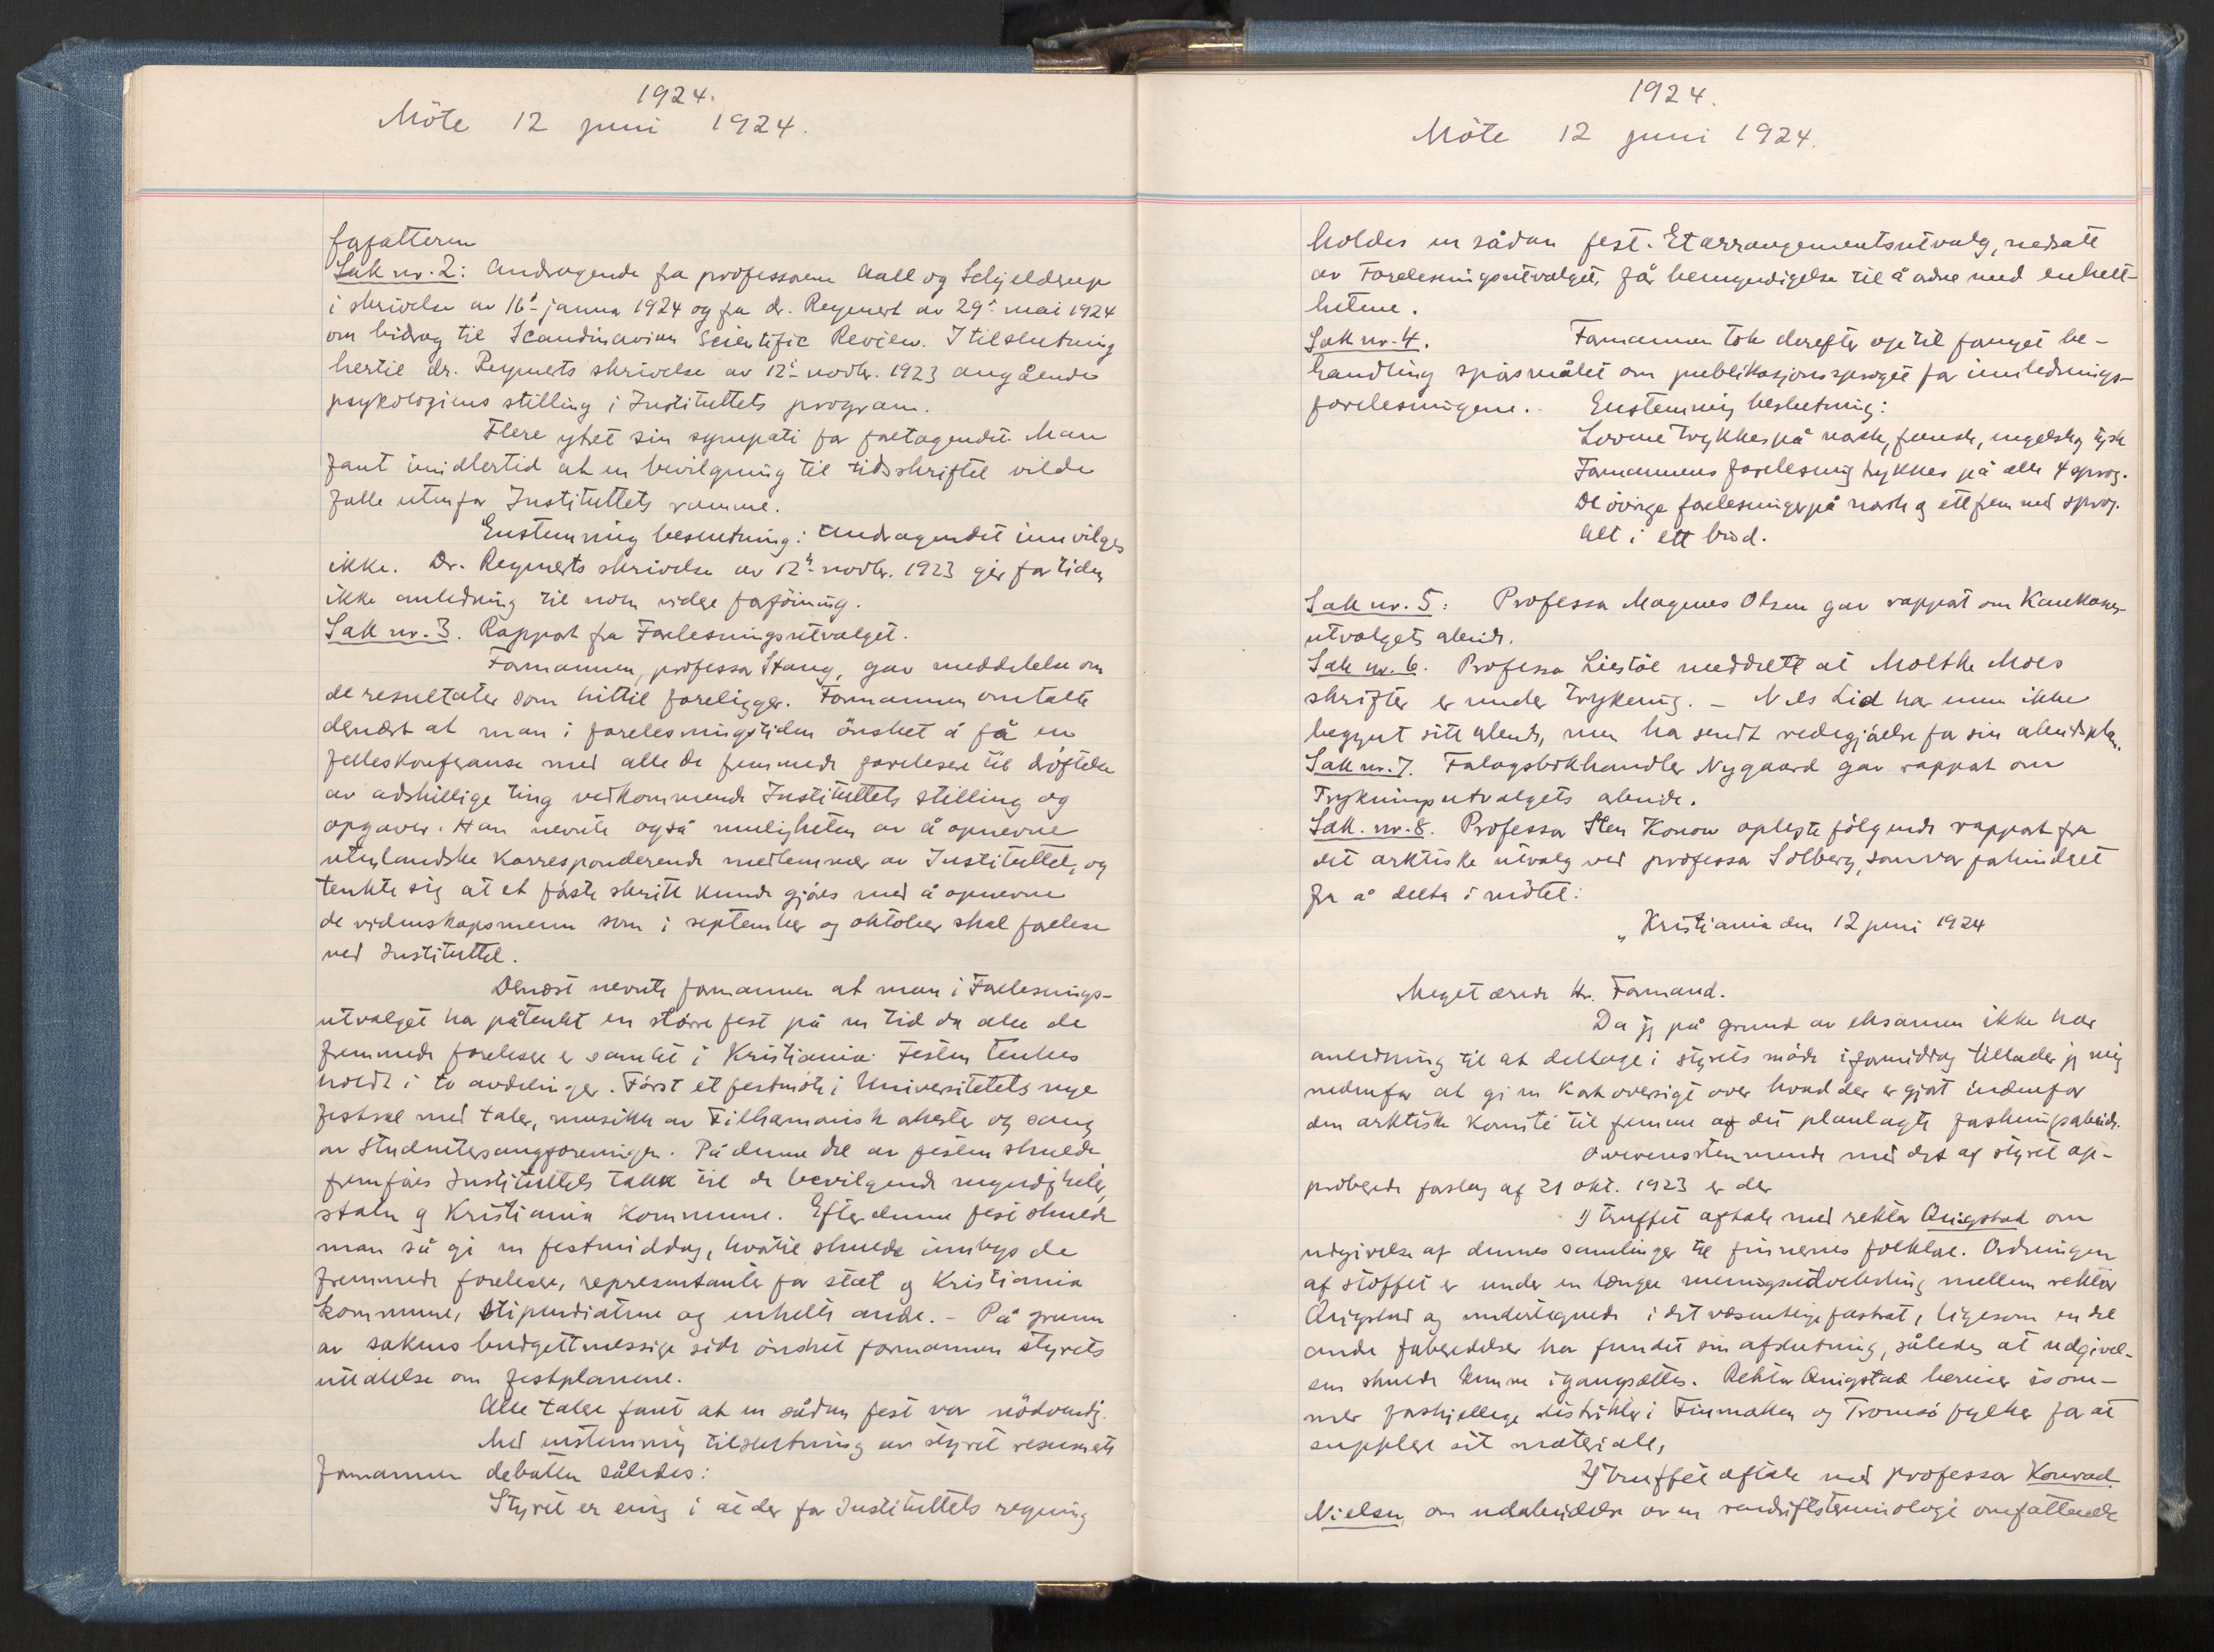 1924.
Möte 12 juni 1924.
fafatteren
Sak nr. 2: Andragende fra professorene Aall og Schjeldrup
i skrivelse av 16s januar 1924 og fra dr. Reymert av 29s mai 1924
om bidrag til Scandinavian Scientific Review. I tilslutning
hertil dr. Reymerts skrivelse av 12s novbr. 1923 angående
psykologiens stilling i Instituttets program.
Flere ytret sin sympati for foretagendet. Man
fant imidlertid at en bevilgning til tidsskriftet vilde
falle utenfor Instituttets ramme.
Enstemmig beslutning: Andragendet innvilges
ikke. Dr. Reymerts skrivelse av 12s novbr. 1923 gir for tiden
ikke anledning til noen videre forföining.
Sak nr. 3. Rapport fra Forelesningsutvalget.
Formannen, professor Stang, gav meddelelse om
de resultater som hittil foreligger. Formannen omtalte
dernæst at man i forelesningstiden önsket å få en
felleskonferanse med alle de fremmede forelesere til dröftelse
av adskillige ting vedkommende Instituttets stilling og
opgaver. Han nevnte også muligheten av å opnevne
utenlandske korresponderende medlemmer av Instituttet, og
tenkte sig at et förste skritt kunde gjöres med å opnevne
de videnskapsmenn som i september og oktober skal forelese
ved Instituttet.
Dernæst nevnte formannen at man i Forelesnings-
utvalget har påtenkt en större fest på en tid da alle de
fremmede forelesere er samlet i Kristiania. Festen tenkes
holdt i to avdelinger. Först et festmöte i Universitetets nye
festsal med taler, musikk av Filharmonisk orkester og sang
av Studentersangforeningen. På denne del av festen skulde
fremföres Instituttets takk til de bevilgende myndigheter,
staten og Kristiania kommune. Efter denne fest skulde
man så gi en festmiddag, hvortil skulde innbys de
fremmede forelesere, representanter for stat og Kristiania
kommune, stipendiatene og enkelte andre. - På grunn
av sakens budgettmessige side önsket formannen styrets
uttalelse om festplanene.
Alle talere fant at en sådan fest var nödvendig.
Med enstemmig tilslutning av styret resumerte
formannen debatten således:
Styret er enig i at der for Instituttets regning
1924.
Möte 12 juni 1924.
holdes en sådan fest. Et arrangementsutvalg, nedsatt
av Forelesningsutvalget, får bemyndigelse til å ordne med enkelt-
hetene.
Sak nr. 4. Formannen tok derefter op til fornyet be-
handling spörsmålet om publikasjonssproget for innlednings-
forelesningene. Enstemmig beslutning:
Lovene trykkes på norsk, fransk, engelsk og tysk
Formannens forelesning trykkes på alle 4 sprog.
De övrige forelesninger på norsk og ett fremmed sprog.
Alt i ett bind.
Sak nr. 5: Professor Magnus Olsen gav rapport om Kaukasus-
utvalgets arbeide.
Sak nr. 6. Professor Liestöl meddelte at Moltke Moes
skrifter er under trykning. - Nils Lid har ennu ikke
begynt sitt arbeide, men har sendt redegjörelse for sin arbeidsplan.
Sak nr. 7. Forlagsbokhandler Nygaard gav rapport om
Trykningsutvalgets arbeide.
Sak. nr. 8. Professor Sten Konow opleste fölgende rapport fra
det arktiske utvalg ved professor Solberg, som var forhindret
fra å delta i mötet:
„Kristiania den 12 juni 1924
Meget ærede Hr. Formand.
Da jeg på grund av eksamen ikke har
anledning til at deltage i styrets möde i formiddag tillader jeg mig
nedenfor at gi en kort oversigt over hvad der er gjort indenfor
den arktiske komité til fremme af det planlagte forskningsarbeide.
Overensstemmende med det af styret ap-
proberede forslag af 21 okt. 1923 er der
1) truffet aftale med rektor Qvigstad om
utgivelse af dennes samlinger til finnernes folklore. Ordningen
af stoffet er under en længere meningsutveksling mellem rektor
Qvigstad og undertegnede i det væsentlige fastsat, ligesom en del
andre forberedelser har fundet sin afslutning, således at udgivel-
sen skulde kunne igangsættes. Rektor Qvigstad bereiser i som-
mer forskjellige distrikter i Finmarken og Tromsö fylker for at
supplere sit materiale,
2) truffet aftale med professor Konrad
Nielsen om udarbeidelse av en rendriftsterminologi omfattende